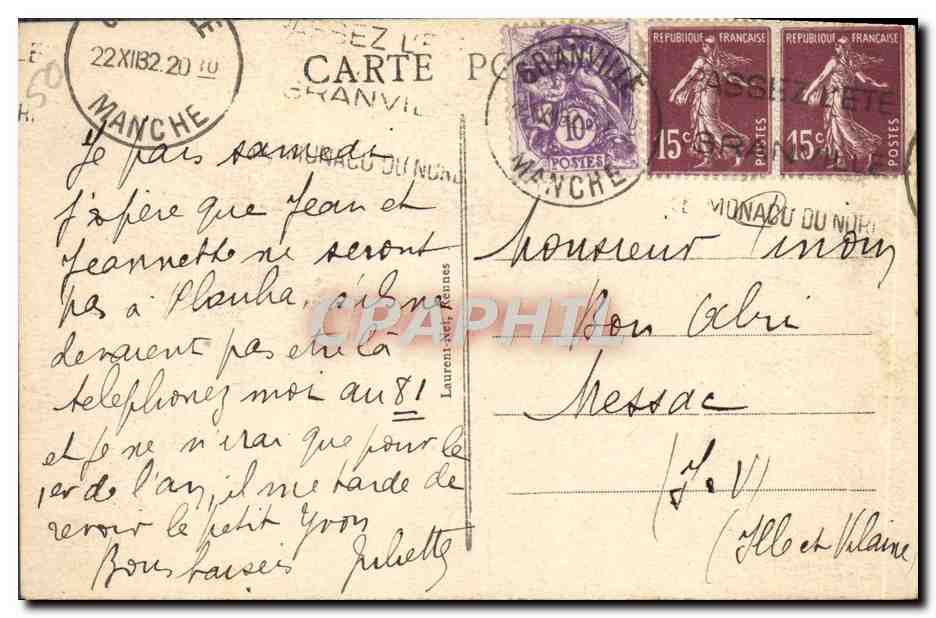 22 XII 32.20
MANCHE
CARTE
GRANVILLE
MANCHE
10c
POSTES
REPUBLIQUE FRANÇAISE
15c
POSTES
REPUBLIQUE FRANÇAISE
15c
POSTES
PASSEZ L'ÉTÉ
GRANVILLE
LE MONACO DU NORD
50
Je pars samedi
j'espère que Jean et
Jeannette ne seront
pas à Plouha, s'ils ne
devaient pas etre là
telephonez moi au 81
et je ne n'irai que pour le
1er de l'an, il me tarde de
revoir le petit Yvon
Bons baisers Juliette
Laurent-Nel, Rennes
Monsieur
Bon Abri
Messac
(I.V)
(Ille et Vilaine)
CPAPHIL